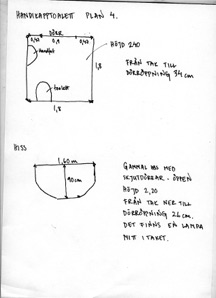 HANDIKAPPTOALETT PLAN 4.
DÖRR
0,45 0,9 0,45
HÖJD 240
handfat
1,8
FRÅN TAK TILL
DÖRRÖPPNING 34 cm
toalett
1,8
HISS
1,60 m
90 cm
GAMMAL MED
SKJUTDÖRRAR - ÖPPEN
HÖJD 2,20
FRÅN TAK NER TILL
DÖRRÖPPNING 26 cm.
DET FINNS EN LAMPA
MITT I TAKET.